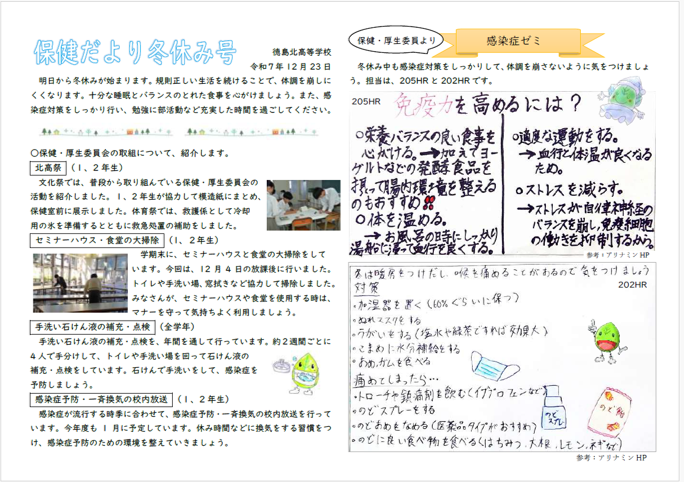 保健だより冬休み号
徳島北高等学校
令和７年１２月２３日
明日から冬休みが始まります。規則正しい生活を続けることで、体調を崩しに
くくなります。十分な睡眠とバランスのとれた食事を心がけましょう。また、感
染症対策をしっかり行い、勉強に部活動など充実した時間を過ごしてください。
〇保健・厚生委員会の取組について、紹介します。
北高祭（１、２年生）
文化祭では、普段から取り組んでいる保健・厚生委員会の
活動を紹介しました。１、２年生が協力して模造紙にまとめ、
保健室前に展示しました。体育祭では、救護係として冷却
用の氷を準備するとともに救急処置の補助をしました。
セミナーハウス・食堂の大掃除（１、２年生）
学期末に、セミナーハウスと食堂の大掃除をして
います。今回は、１２月４日の放課後に行いました。
トイレや手洗い場、窓拭きなど協力して掃除しました。
みなさんが、セミナーハウスや食堂を使用する時は、
マナーを守って気持ちよく利用しましょう。
手洗い石けん液の補充・点検（全学年）
手洗い石けん液の補充・点検を、年間を通して行っています。約２週間ごとに
４人で手分けして、トイレや手洗い場を回って石けん液の
補充・点検をしています。石けんで手洗いをして、感染症を
予防しましょう。
感染症予防・一斉換気の校内放送（１、２年生）
感染症が流行する時季に合わせて、感染症予防・一斉換気の校内放送を行って
います。今年度も１月に予定しています。休み時間などに換気をする習慣をつ
け、感染症予防のための環境を整えていきましょう。
保健・厚生委員より
感染症ゼミ
冬休み中も感染症対策をしっかりして、体調を崩さないように気をつけましょ
う。担当は、205HRと202HRです。
205HR
免疫力を高めるには？
〇栄養バランスの良い食事を
心がける。→加えてヨー
グルトなどの発酵食品を
摂って腸内環境を整える
のもおすすめ!!
〇体を温める。
→お風呂の時にしっかり
湯船に浸って血行を良くする。
〇適度な運動をする。
→血行と体温が良くなる
ため。
〇ストレスを減らす。
→ストレスが自律神経の
バランスを崩し、免疫細胞
の働きを抑制するから。
参考：アリナミンHP
冬は暖房をつけだし、喉を痛めることがあるので気をつけましょう
202HR
対策
・加湿器を置く（60%ぐらいに保つ）
・ぬれマスクをする
・うがいをする（塩水や緑茶ですれば効果大）
・こまめに水分補給をする
・あめ、ガムを食べる
痛めてしまったら…
・トローチや鎮痛剤を飲む（イブプロフェンなど）
・のどスプレーをする
・のどあめをなめる（医薬品タイプがおすすめ）
・のどに良い食べ物を食べる（はちみつ、大根、レモン、ネギなど）
のど
スプレー
のど飴
参考：アリナミンHP